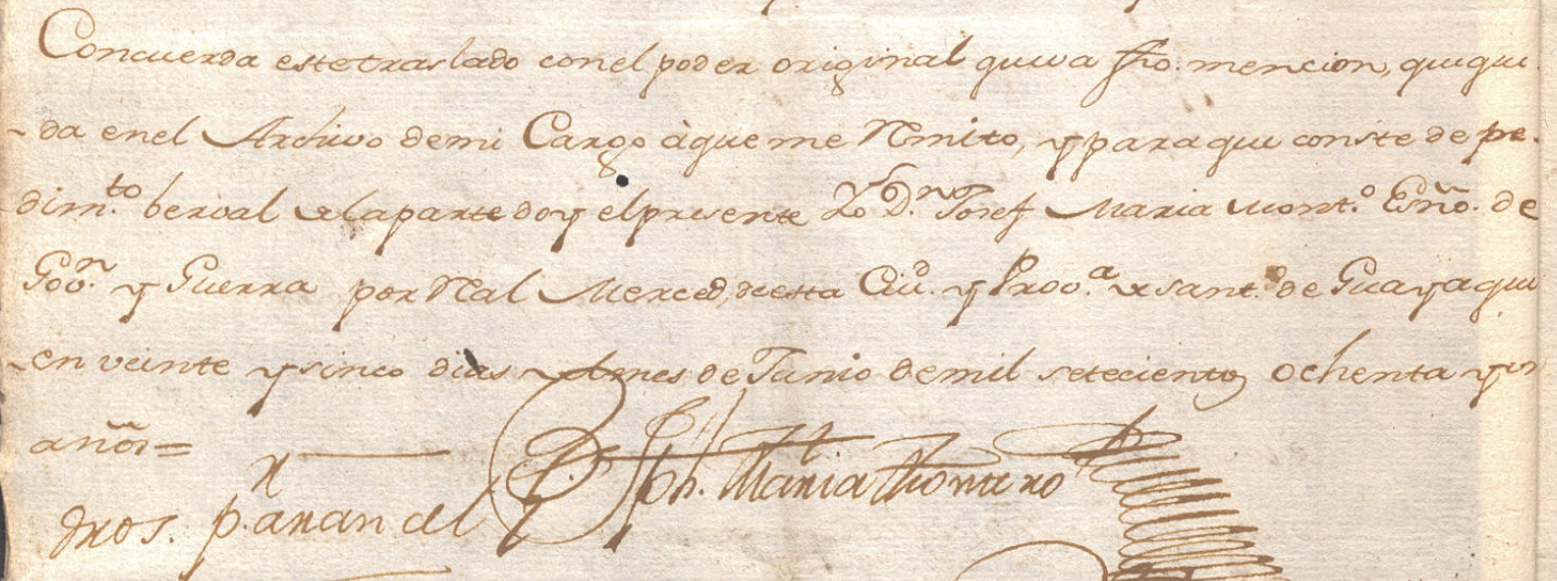 Concuerda este traslado con el poder original que va fho. mencion, que que-
-da en el Archivo de mi Cargo à que me Rmito, y para que conste de pe-
dim.to berval de la parte doy el presente Yo D.n Josef Maria Mont.o Esño. de
Gov.n y Guerra por Ral Merced, de esta Ciu.d y Prov.a de Sant.o de Guayaquil
en veinte y sinco dias del mes de Junio de mil setecientos ochenta y un
años=
D. Jph. Maria Montero
dros. p. aran cel